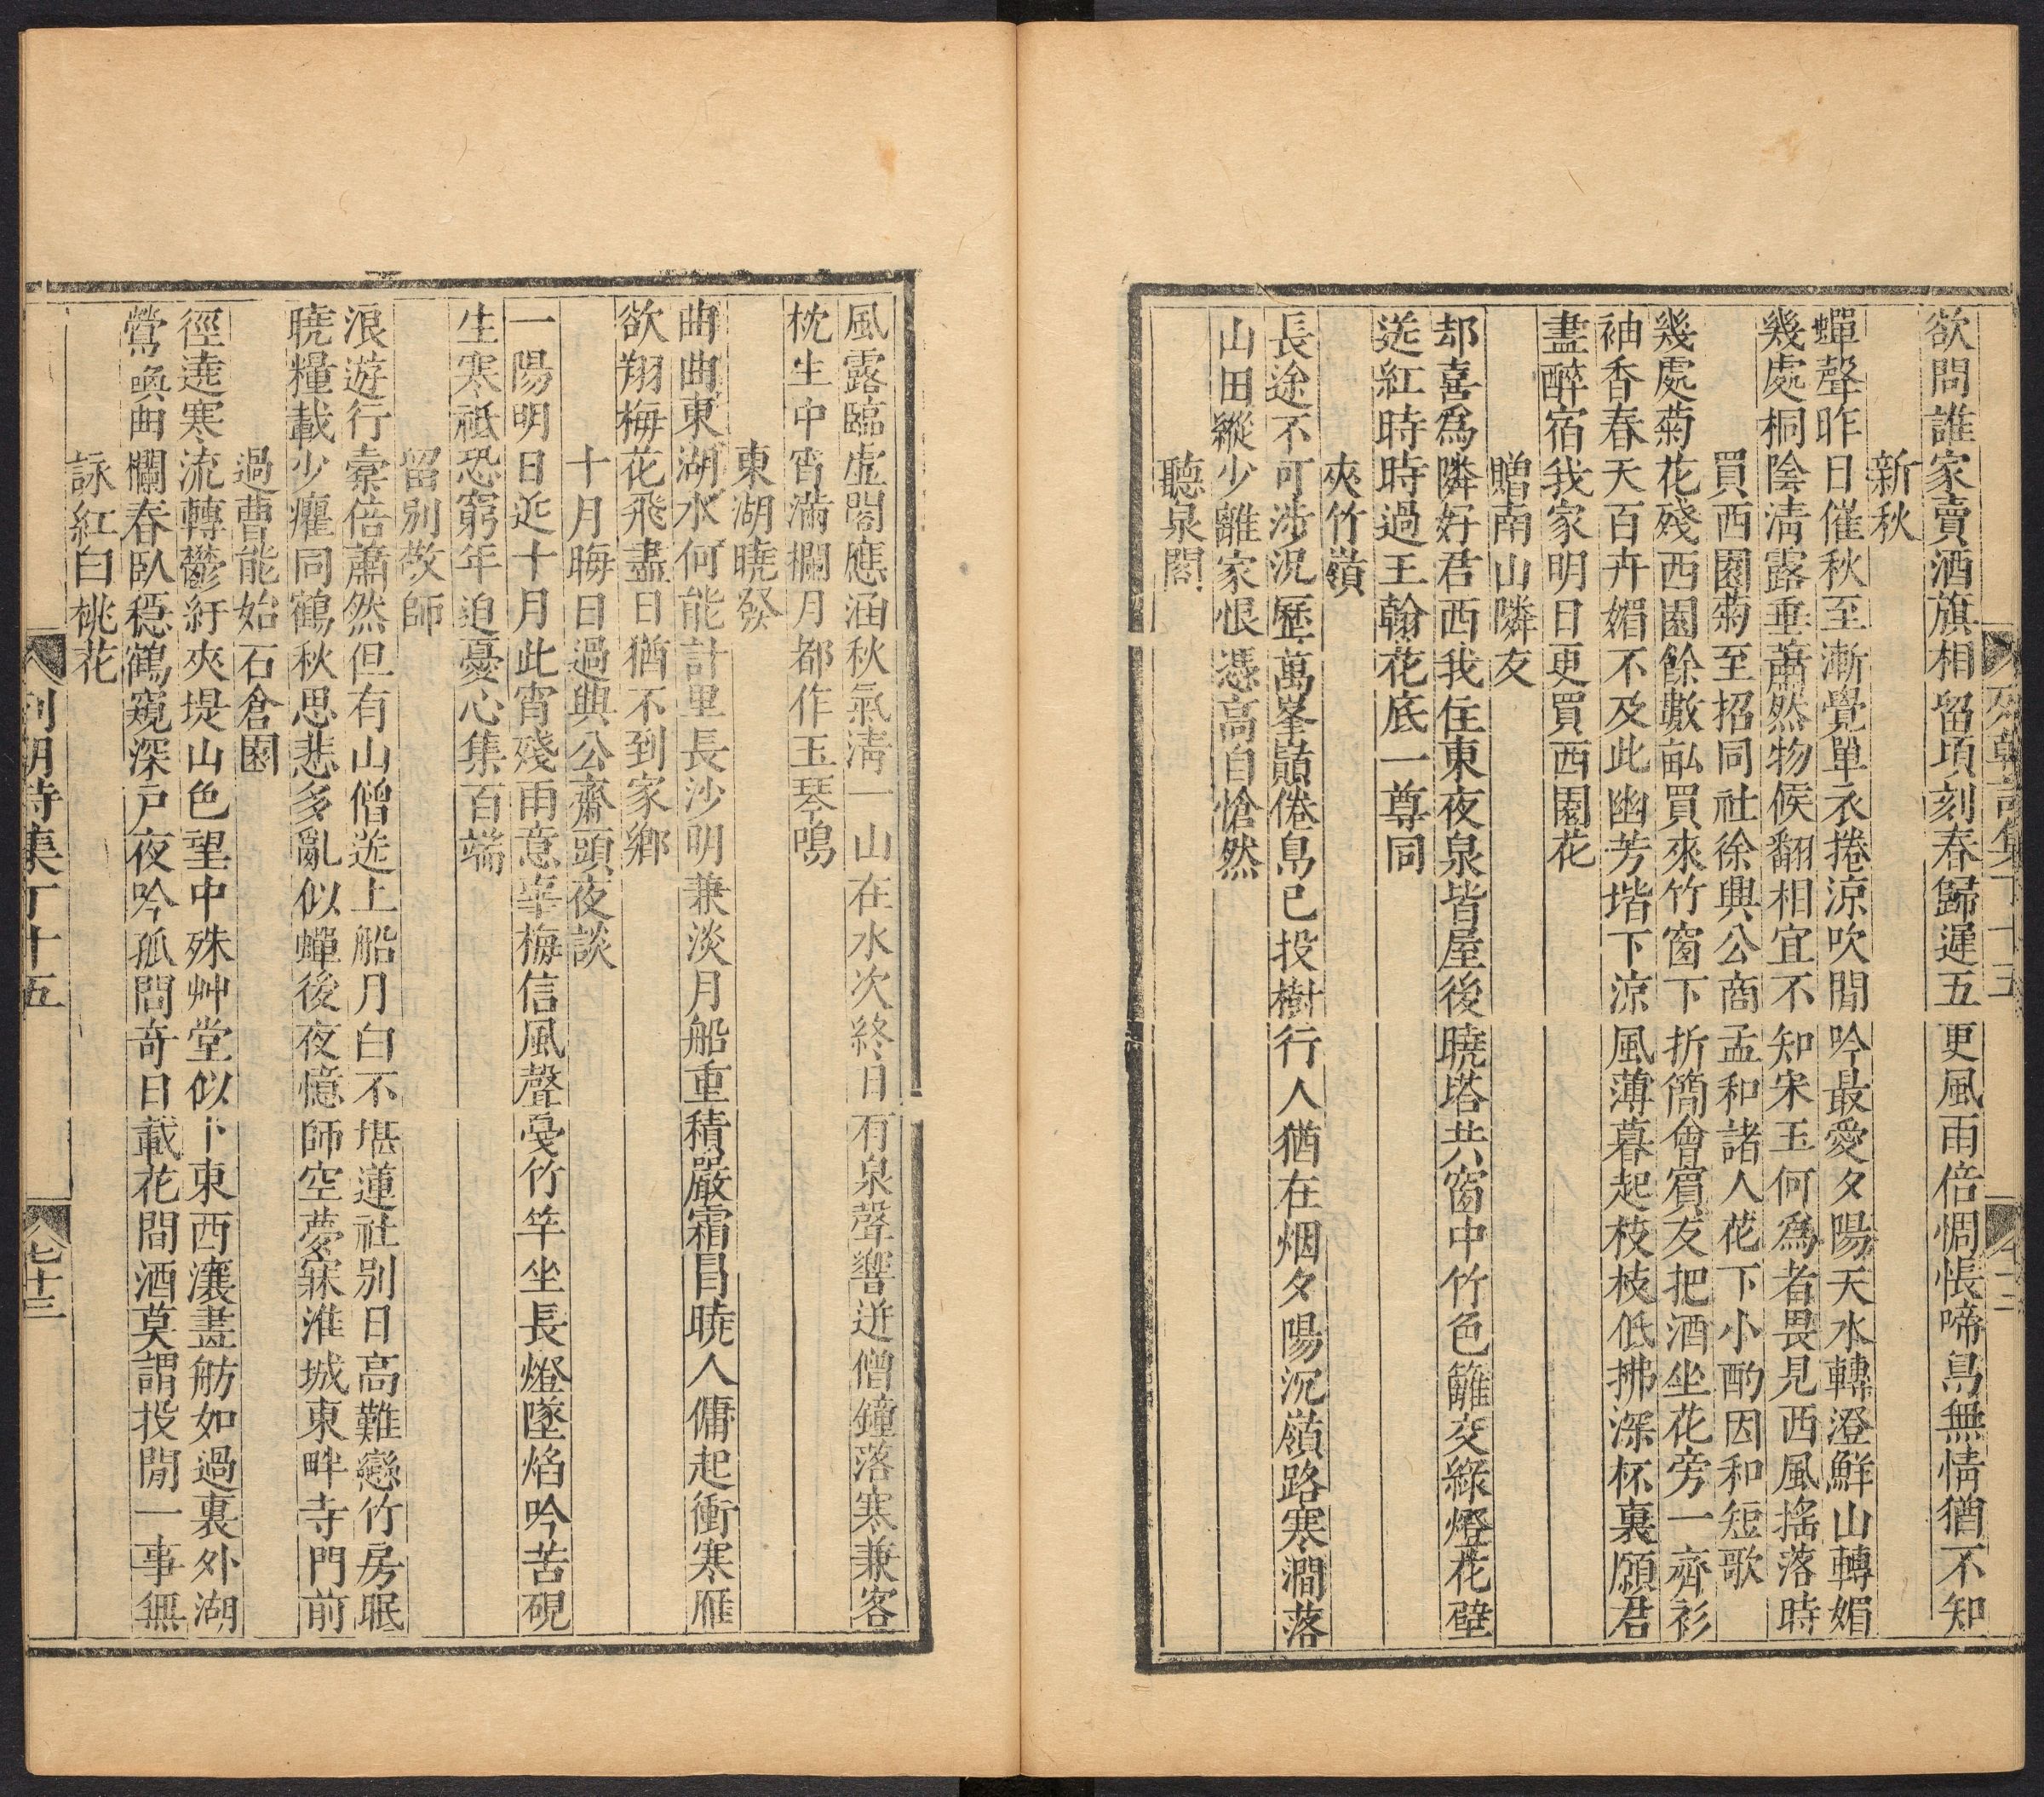 欲問誰家賣酒旗相留頃刻春歸遲五更風雨倍惆悵啼鳥無情猶不知
新秋
蟬聲昨日催秋至漸覺單衣捲涼吹閒吟最愛夕陽天水轉澄鮮山轉媚
幾處桐陰淸露垂蕭然物候翻相宜不知宋玉何爲者畏見西風搖落時
買西園菊至招同社徐興公商孟和諸人花下小酌因和短歌
幾處菊花殘西園餘數畝買來竹窗下折簡會賓友把酒坐花旁一齊衫
袖香春天百卉媚不及此幽芳堦下涼風薄暮起枝枝低拂深杯裏願君
盡醉宿我家明日更買西園花
贈南山隣友
却喜爲隣好君西我住東夜泉皆屋後曉塔共窗中竹色籬交綠燈花壁
送紅時時過王翰花底一尊同
夾竹嶺
長途不可涉況歷萬峯巔倦鳥已投樹行人猶在烟夕陽沉嶺路寒澗落
山田縱少離家恨憑高自愴然
聽泉閣
風露臨虛閣應涵秋氣淸一山在水次終日有泉聲響逬僧鐘落寒兼客
枕生中宵滿欄月都作玉琴鳴
東湖曉發
曲曲東湖水何能計里長沙明兼淡月船重積嚴霜冒曉人傭起衝寒雁
欲翔梅花飛盡日猶不到家鄉
十月晦日過興公齋頭夜談
一陽明日近十月此宵殘雨意辜梅信風聲戞竹竿坐長燈墜焰吟苦硯
生寒祗恐窮年迫憂心集百端
留別敬師
浪遊行橐倍蕭然但有山僧送上船月白不堪蓮社別日高難戀竹房眠
曉糧載少癯同鶴秋思悲多亂似蟬後夜憶師空夢寐淮城東畔寺門前
過曹能始石倉園
徑遶寒流轉鬱紆夾堤山色望中殊艸堂似卜東西瀼畫舫如過裏外湖
鶯喚曲欄春臥穩鶴窺深戶夜吟孤問奇日載花間酒莫謂投閒一事無
詠紅白桃花
列朝詩集丁十五
七十三